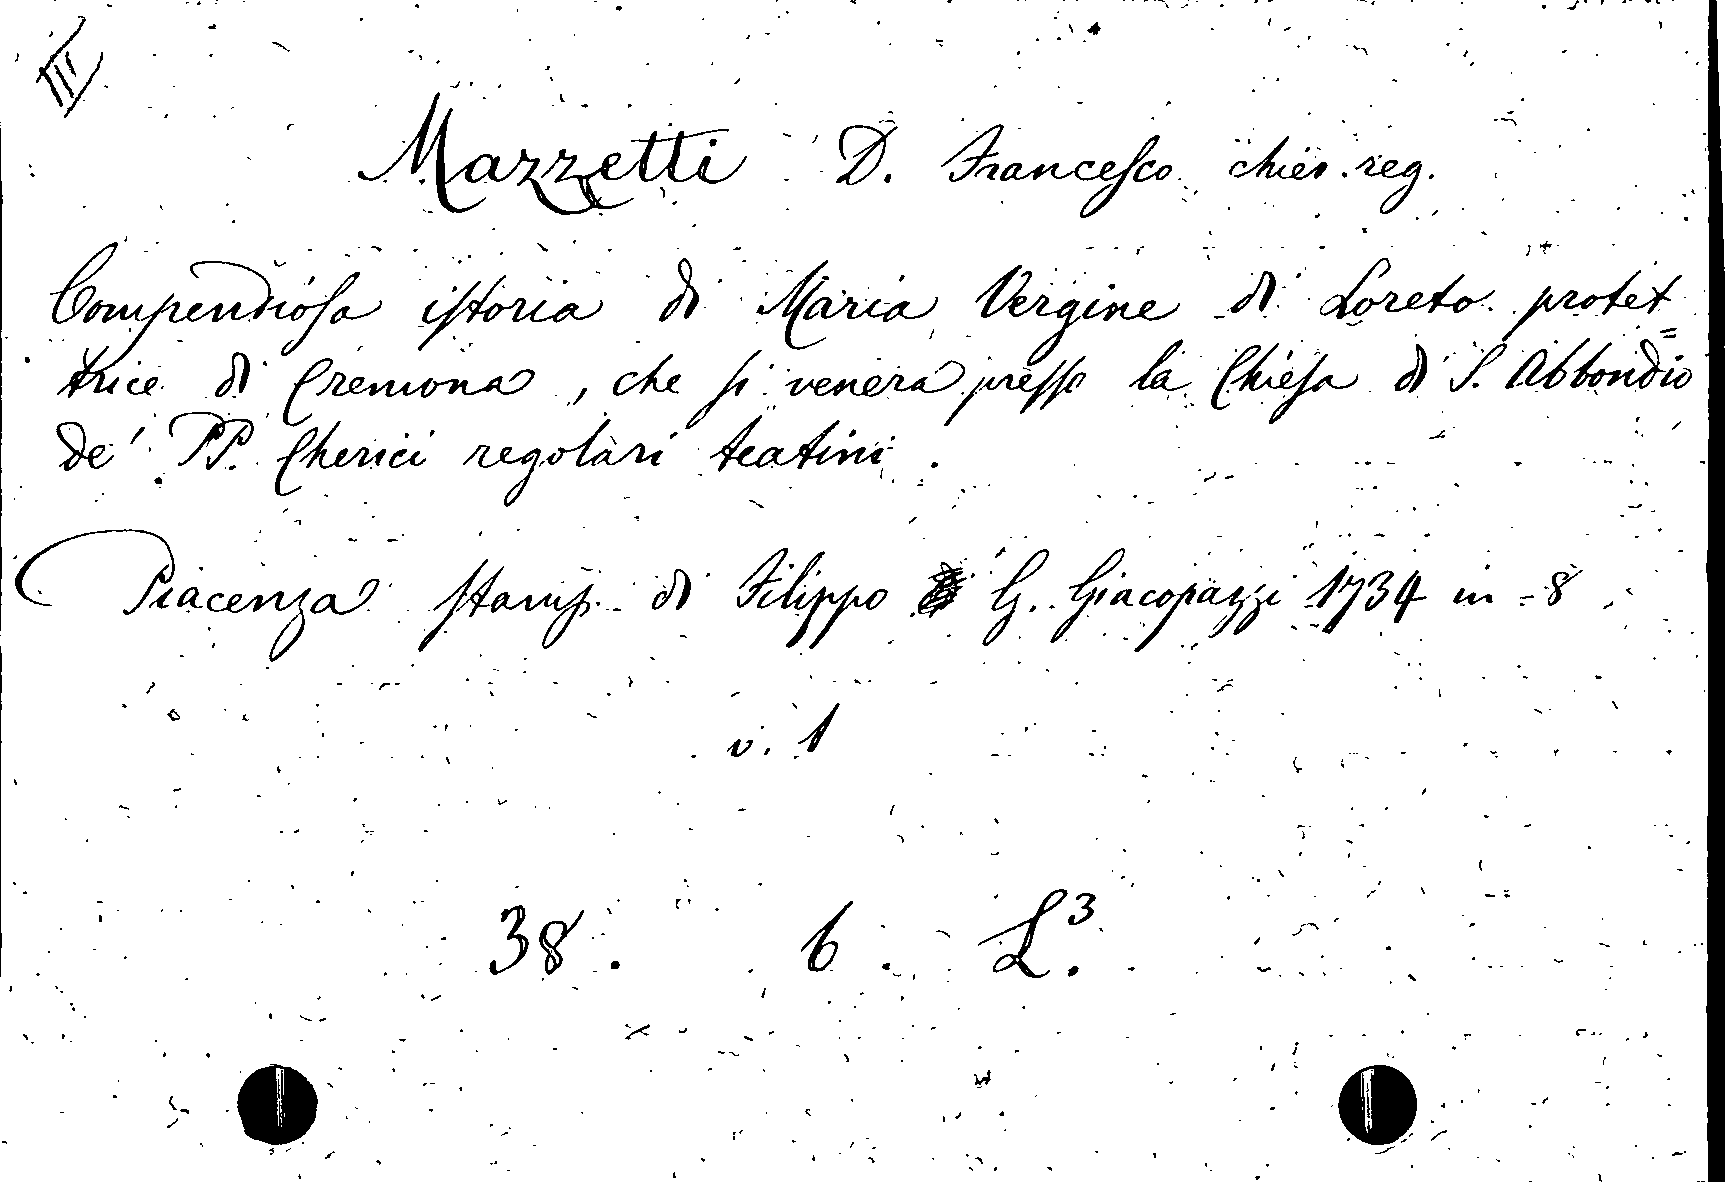 III
Mazzetti D. Francesco chier. reg.
Compendiosa istoria di Maria Vergine di Loreto protet=
trice di Cremona, che si venera presso la Chiesa di S. Abbondio
de' PP. Cherici regolari teatini.
Piacenza stamp. di Filippo G. Giacopazzi 1734 in-8
v. 1
38. 6. L.3